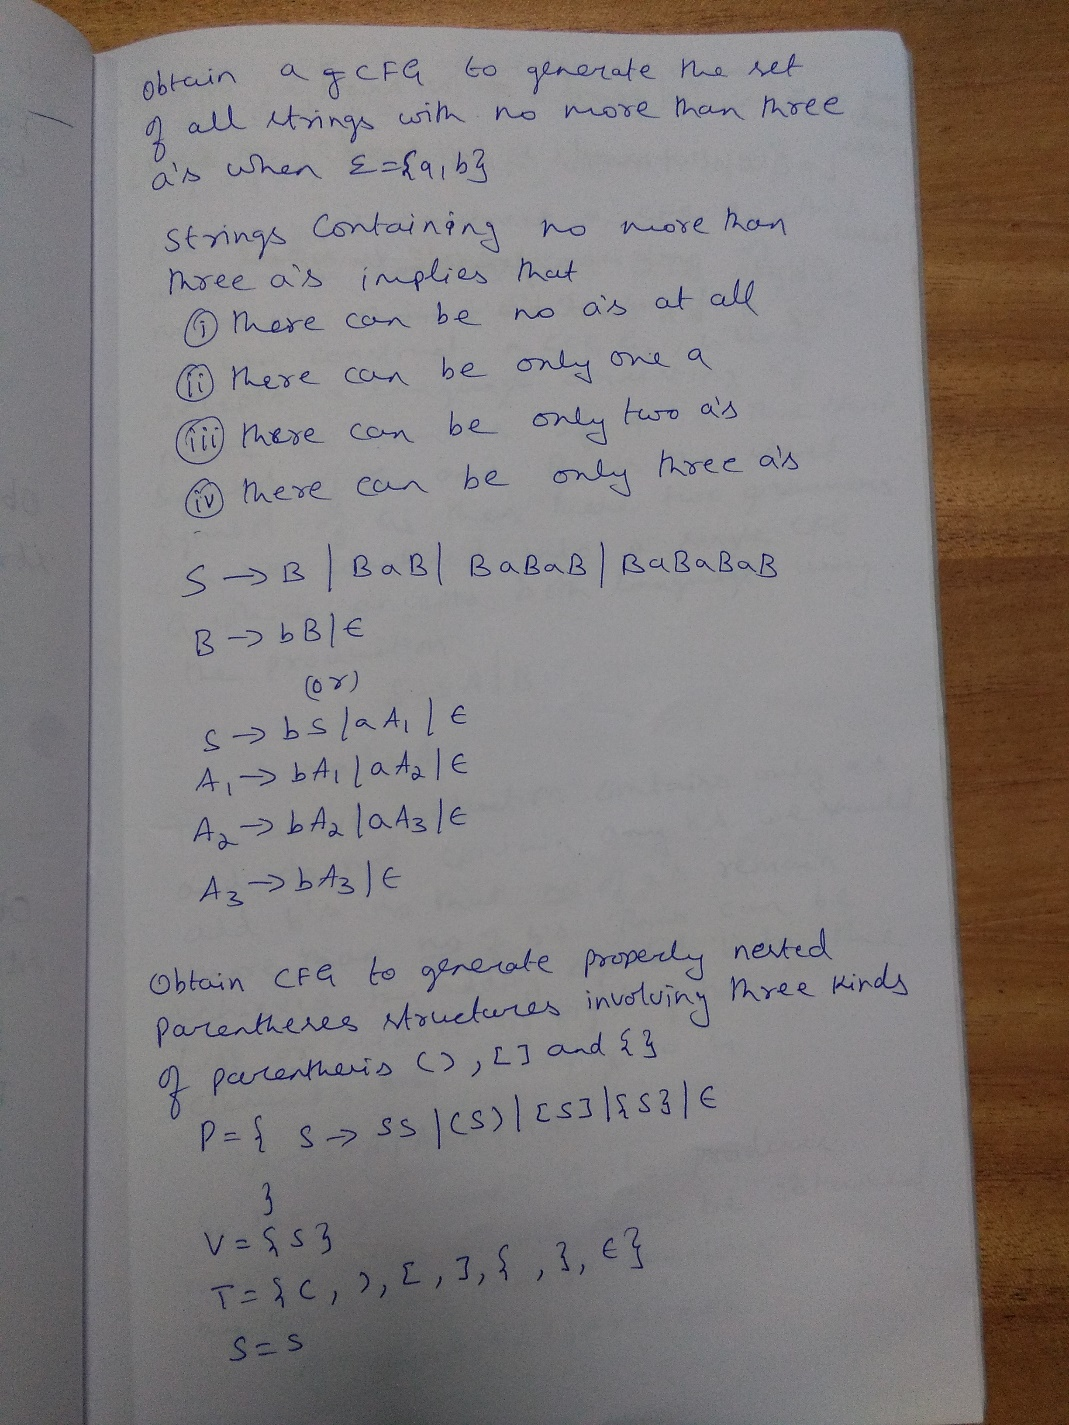 Obtain a g CFG to generate the set
of all strings with no more than three
a's when Σ={a,b}
Strings Containing no more than
three a's implies that
(i) there can be no a's at all
(ii) there can be only one a
(iii) there can be only two a's
(iv) there can be only three a's
S → B | BaB | BaBaB | BaBaBaB
B → bB | ∈
(or)
S → bS | aA₁ | ∈
A₁ → bA₁ | aA₂ | ∈
A₂ → bA₂ | aA₃ | ∈
A₃ → bA₃ | ∈
Obtain CFG to generate properly nested
parentheses structures involving three kinds
of parenthesis (), [] and {}
P = { S → SS | (S) | [S] | {S} | ∈
}
V = {S}
T = { (, ), [, ], {, }, ∈ }
S = S